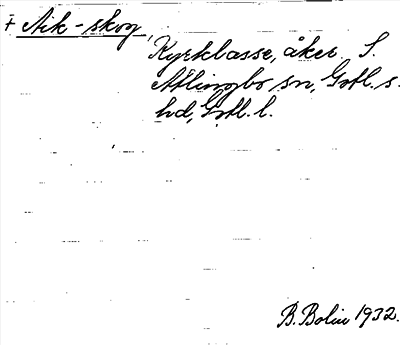 F Aik-skog,
Kyrklasse, åker, S.
Atlingbo sn, Gotl. s.
hd, Gotl. l.
B. Bolin 1932.